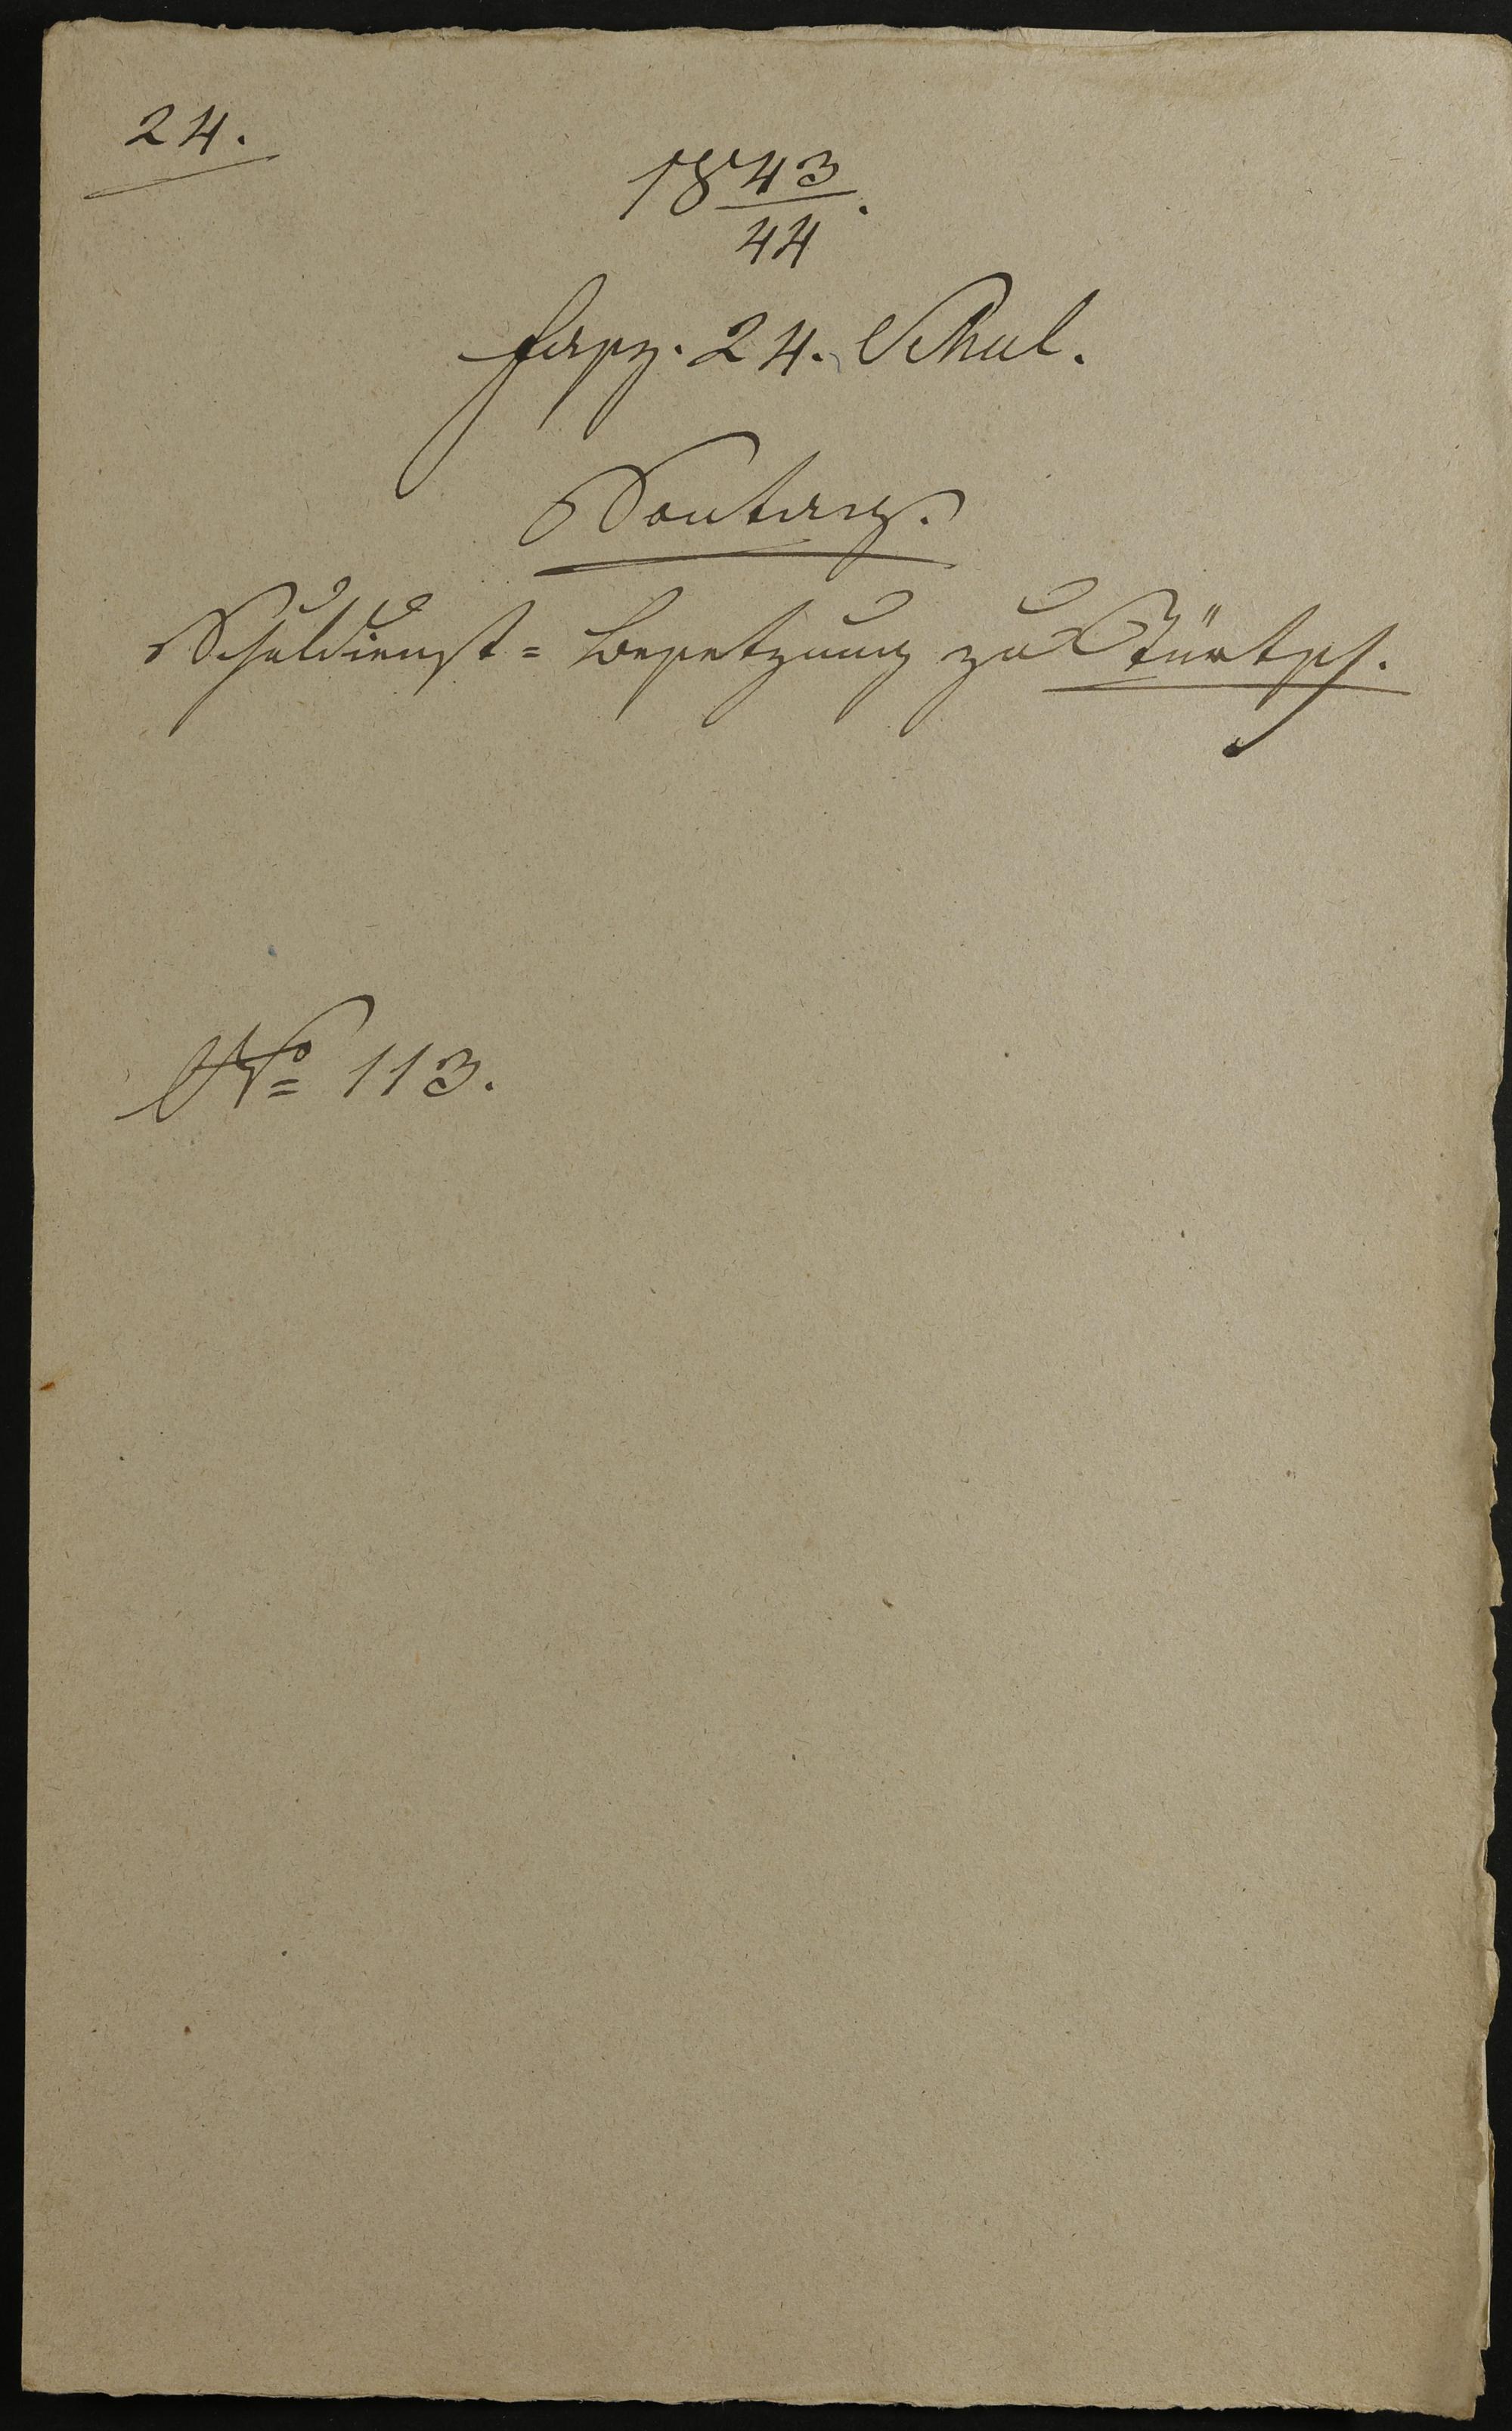 24.
18 43/44.
Fasz. 24. Schul.
Sontag.
Schuldienst = Besetzung zu
No 113.